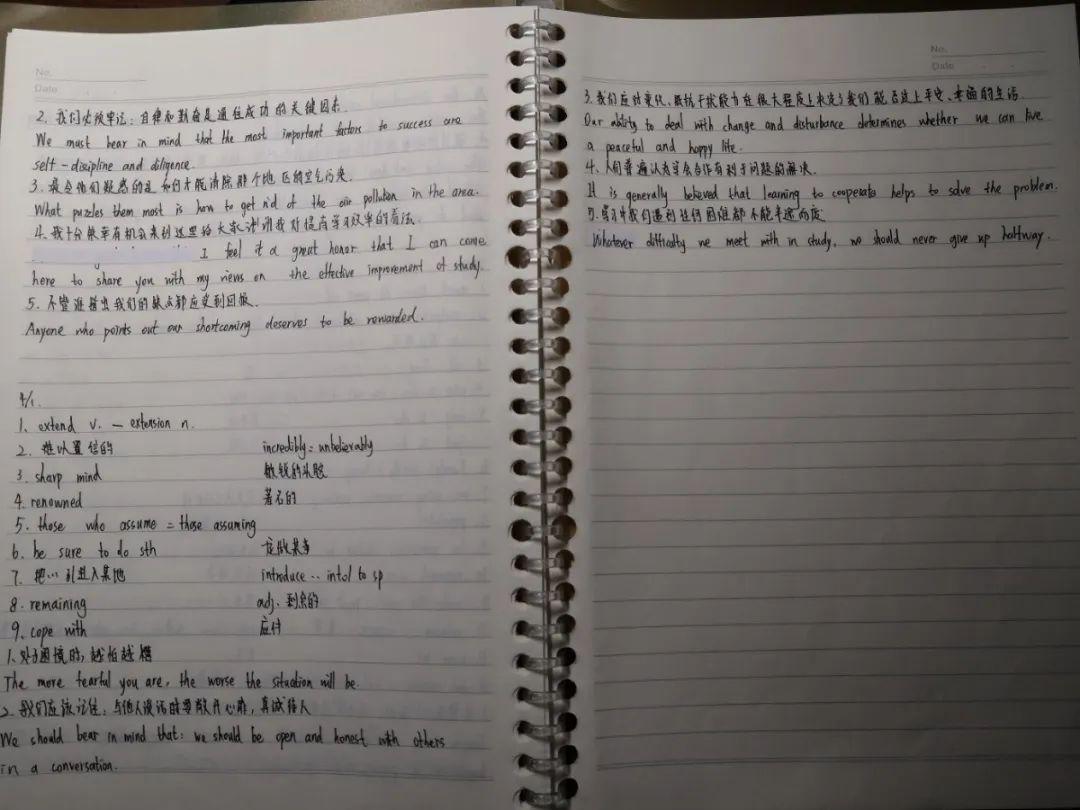 No.
Date
2. 我们必须牢记：自律和勤奋是通往成功的关键因素.
We must bear in mind that the most important factors to success are
self-discipline and diligence.
3. 最令他们疑惑的是如何才能清除那个地区的空气污染.
What puzzles them most is how to get rid of the air pollution in the area.
4. 我十分荣幸有机会来到这里给大家讲讲我对提高学习效率的看法.
I feel it a great honor that I can come
here to share you with my views on the effective improvement of study.
5. 不管谁指出我们的缺点都应受到回报.
Anyone who points out our shortcoming deserves to be rewarded.
4/1.
1. extend v. — extension n.
2. 难以置信的 incredibly = unbelievably
3. sharp mind 敏锐的头脑
4. renowned 著名的
5. those who assume = those assuming
6. be sure to do sth 一定做某事
7. 把… 引进入某地 introduce .. into/ to sp
8. remaining adj. 剩余的
9. cope with 应付
1. 处于困境时, 越怕越糟
The more fearful you are, the worse the situation will be.
2. 我们应该记住：与他人谈话时要敞开心扉, 真诚待人
We should bear in mind that: we should be open and honest with others
in a conversation.
No.
Date
3. 我们应对变化、抵抗干扰能力在很大程度上决定了我们能否过上平安、幸福的生活.
Our ability to deal with change and disturbance determines whether we can live
a peaceful and happy life.
4. 人们普遍认为学会合作有利于问题的解决.
It is generally believed that learning to cooperate helps to solve the problem.
5. 学习中我们遇到任何困难都不能半途而废.
Whatever difficulty we meet with in study, we should never give up halfway.